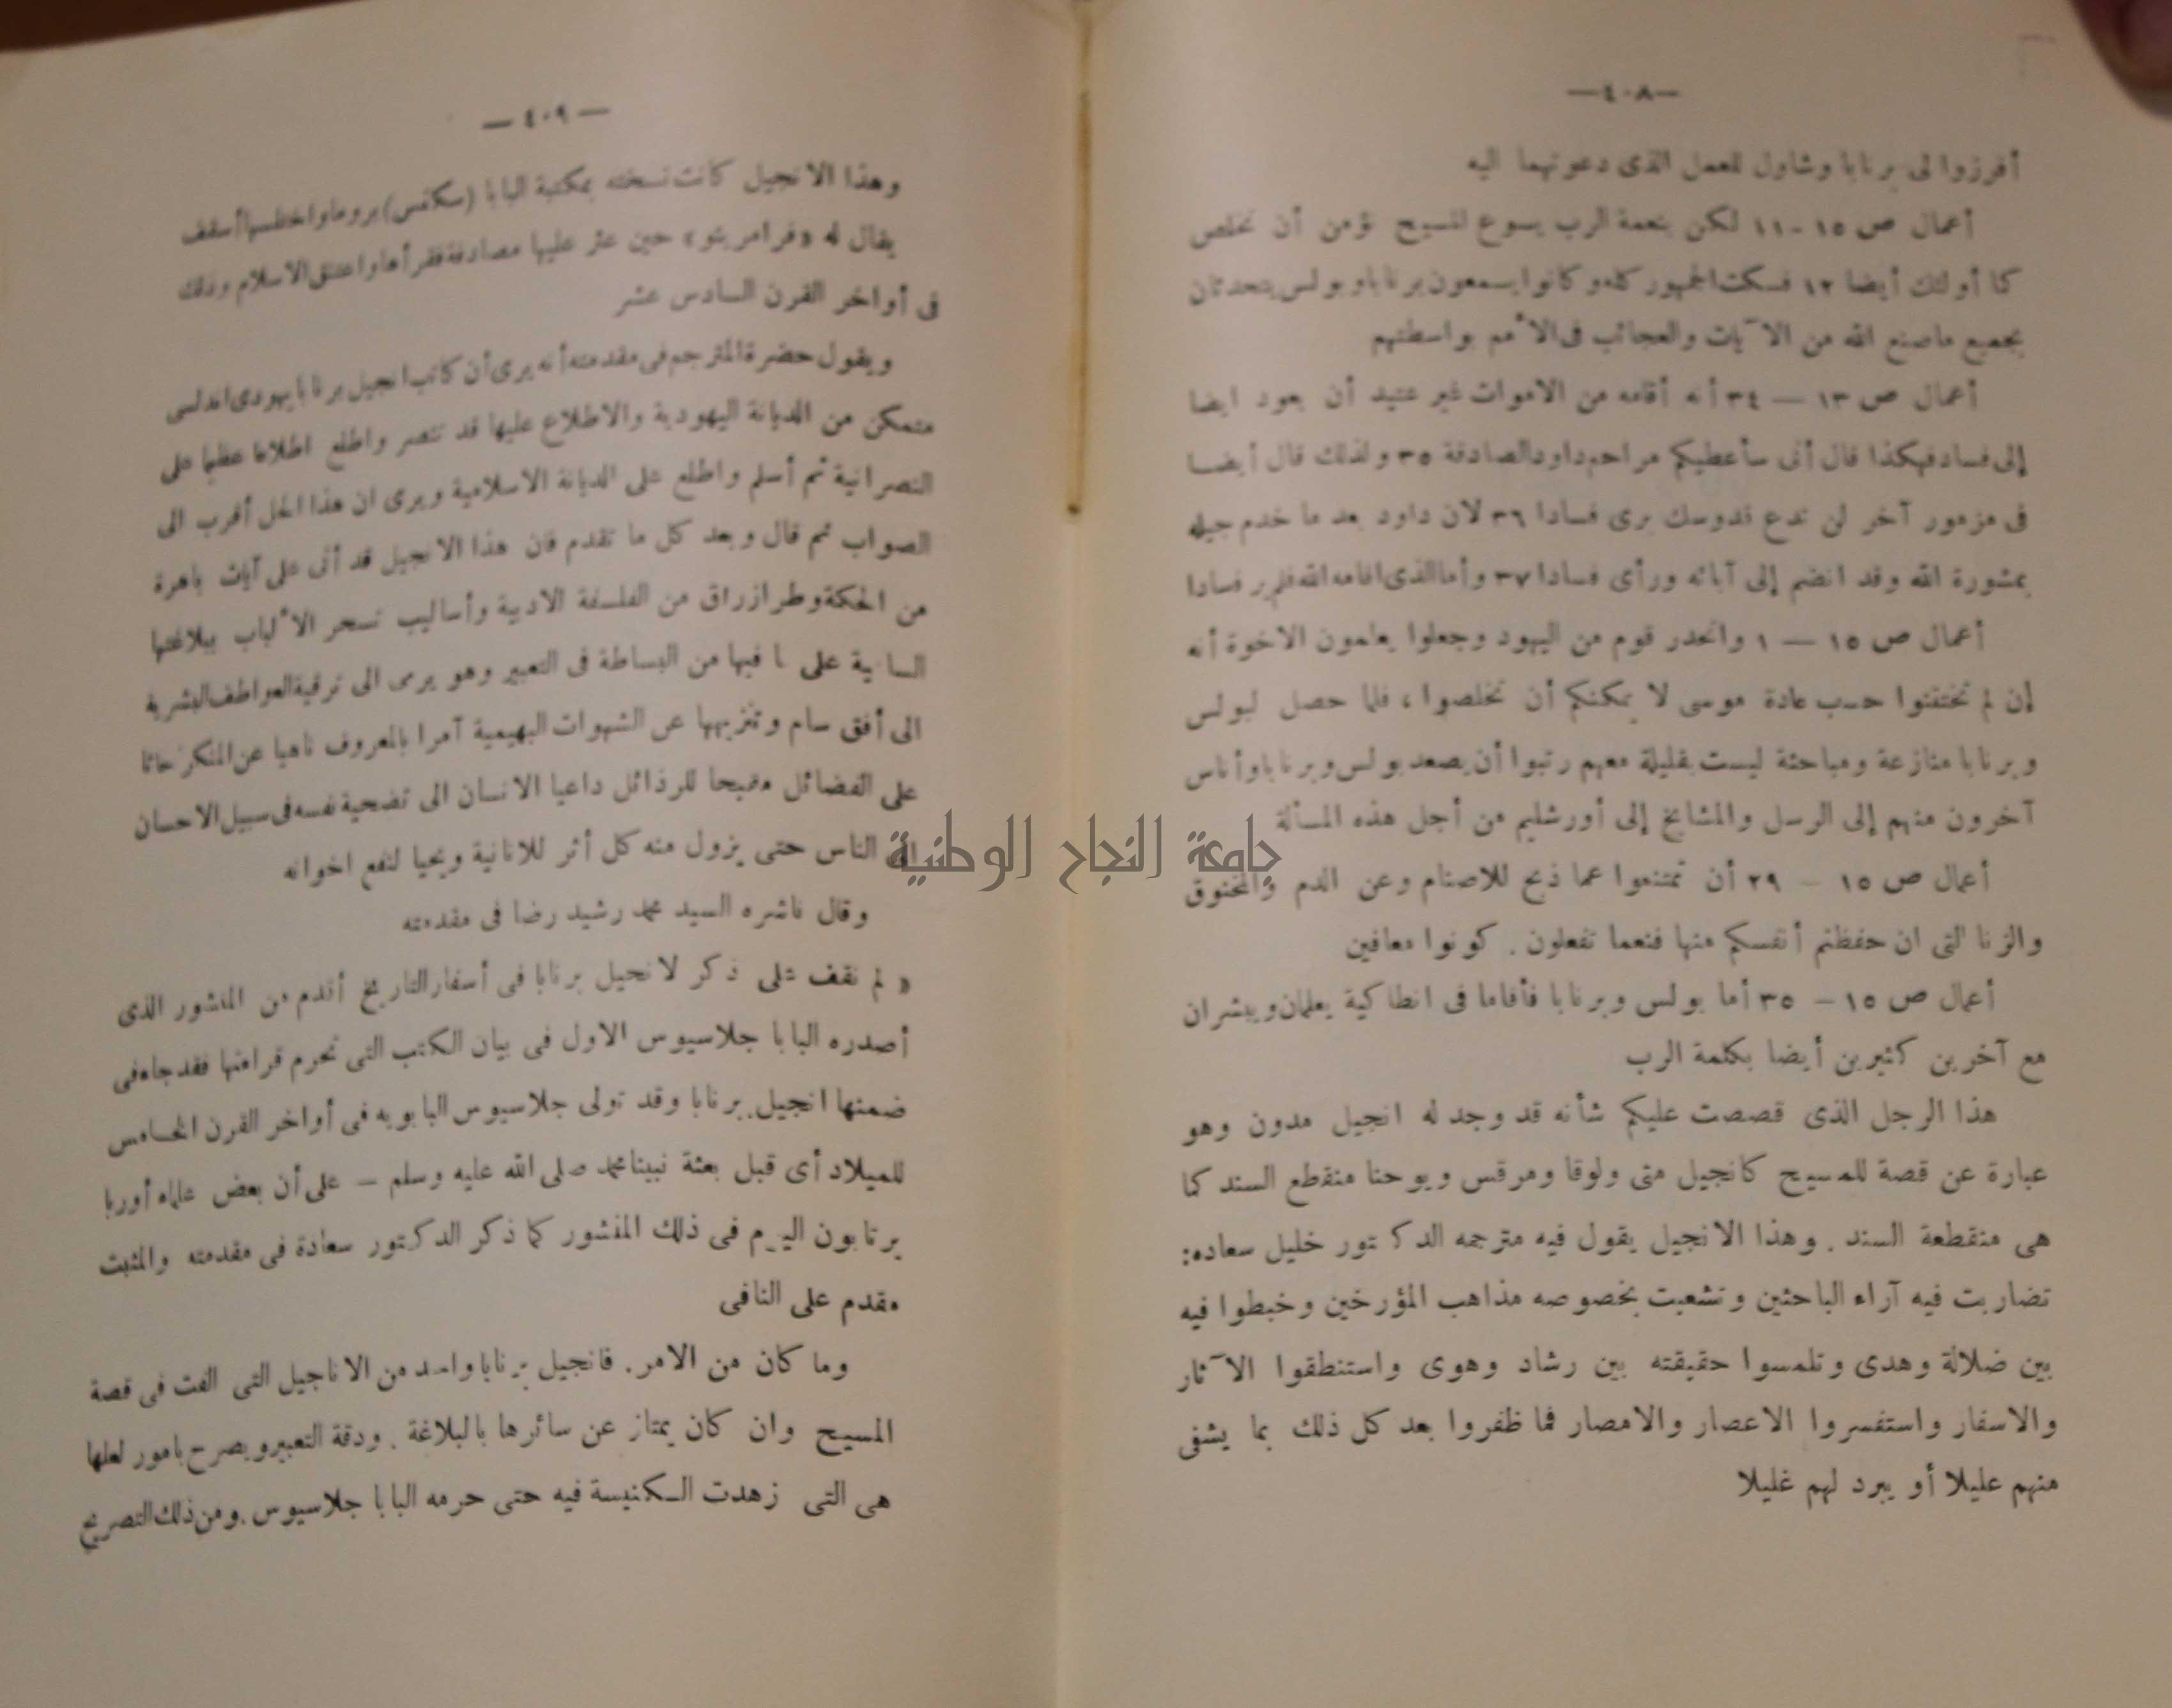 —٤٠٨—
أفرزوا لى برنابا وشاول للعمل الذى دعوتهما اليه
أعمال ص ١٥ -١١ لكن بنعمة الرب يسوع المسيح نؤمن أن نخلص
كما أولئك أيضا ١٢ فسكت الجمهور كله وكانوا يسمعون برنابا وبولس يتحدثان
بجميع ماصنع الله من الآيات والعجائب فى الأمم بواسطتهم
أعمال ص ١٣ — ٣٤ أنه أقامه من الاموات غير عتيد أن يعود ايضا
إلى فساد فهكذا قال أنى سأعطيكم مراحم داود الصادقة ٣٥ ولذلك قال أيضا
فى مزمور آخر لن تدع قدوسك يرى فسادا ٣٦ لان داود بعد ما خدم جيله
بمشورة الله وقد انضم إلى آبائه ورأى فسادا ٣٧ وأما الذى اقامه الله فلم ير فسادا
أعمال ص ١٥ — ١ وانحدر قوم من اليهود وجعلوا يعلمون الاخوة أنه
إن لم تختتنوا حسب عادة موسى لا يمكنكم أن تخلصوا ، فلما حصل لبولس
وبرنابا منازعة ومباحثة ليست بقليلة معهم رتبوا أن يصعد بولس وبرنابا وأناس
آخرون منهم إلى الرسل والمشايخ إلى أورشليم من أجل هذه المسألة
أعمال ص ١٥ – ٢٩ أن تمتنعوا عما ذبح للاصنام وعن الدم والمخنوق
والزنا التى ان حفظتم أنفسكم منها فنعما تفعلون . كونوا معافين
أعمال ص ١٥ – ٣٥ أما بولس وبرنابا فأقاما فى انطاكية يعلمان ويبشران
مع آخرين كثيرين أيضا بكلمة الرب
هذا الرجل الذى قصصت عليكم شأنه قد وجد له انجيل مدون وهو
عبارة عن قصة للمسيح كانجيل متى ولوقا ومرقس ويوحنا منقطع السند كما
هى منقطعة السند . وهذا الانجيل يقول فيه مترجمه الدكتور خليل سعاده:
تضاربت فيه آراء الباحثين وتشعبت بخصوصه مذاهب المؤرخين وخبطوا فيه
بين ضلالة وهدى وتلمسوا حقيقته بين رشاد وهوى واستنطقوا الآثار
والاسفار واستفسروا الاعصار والامصار فما ظفروا بعد كل ذلك بما يشفى
منهم عليلا أو يبرد لهم غليلا
— ٤٠٩ —
وهذا الانجيل كانت نسخته بمكتبة البابا (سكتس) بروما واختلسها أسقف
يقال له «فرامرينو» حين عثر عليها مصادفة فقرأها واعتنق الاسلام وذلك
فى أواخر القرن السادس عشر
ويقول حضرة المترجم فى مقدمته أنه يرى أن كاتب انجيل برنابا يهودى اندلسى
متمكن من الديانة اليهودية والاطلاع عليها قد تنصر واطلع اطلاعا عظيما على
النصرانية ثم أسلم واطلع على الديانة الاسلامية ويرى ان هذا الحل أقرب الى
الصواب ثم قال وبعد كل ما تقدم فان هذا الانجيل قد أتى على آيات باهرة
من الحكمة وطراز راق من الفلسفة الادبية وأساليب تسحر الألباب ببلاغتها
السامية على ما فيها من البساطة فى التعبير وهو يرمى الى ترقية العواطف البشرية
الى أفق سام وتنزيهها عن الشهوات البهيمية آمرا بالمعروف ناهيا عن المنكر حاثا
على الفضائل مقبحا للرذائل داعيا الانسان الى تضحية نفسه فى سبيل الاحسان
الى الناس حتى يزول منه كل أثر للانانية ويحيا لنفع اخوانه
وقال ناشره السيد محمد رشيد رضا فى مقدمته
« لم نقف على ذكر لانجيل برنابا فى أسفار التاريخ أقدم من المنشور الذى
أصدره البابا جلاسيوس الاول فى بيان الكتب التى تحرم قراءتها فقد جاء فى
ضمنها انجيل برنابا وقد تولى جلاسيوس البابويه فى أواخر القرن الخامس
للميلاد أى قبل بعثة نبينا محمد صلى الله عليه وسلم — على أن بعض علماء أوربا
يرتابون اليوم فى ذلك المنشور كما ذكر الدكتور سعادة فى مقدمته والمثبت
مقدم على النافى
وما كان من الامر . فانجيل برنابا واحد من الاناجيل التى الفت فى قصة
المسيح وان كان يمتاز عن سائرها بالبلاغة . ودقة التعبير ويصرح بامور لعلها
هى التى زهدت الكنيسة فيه حتى حرمه البابا جلاسيوس . ومن ذلك التصريح
جامعة النجاح الوطنية